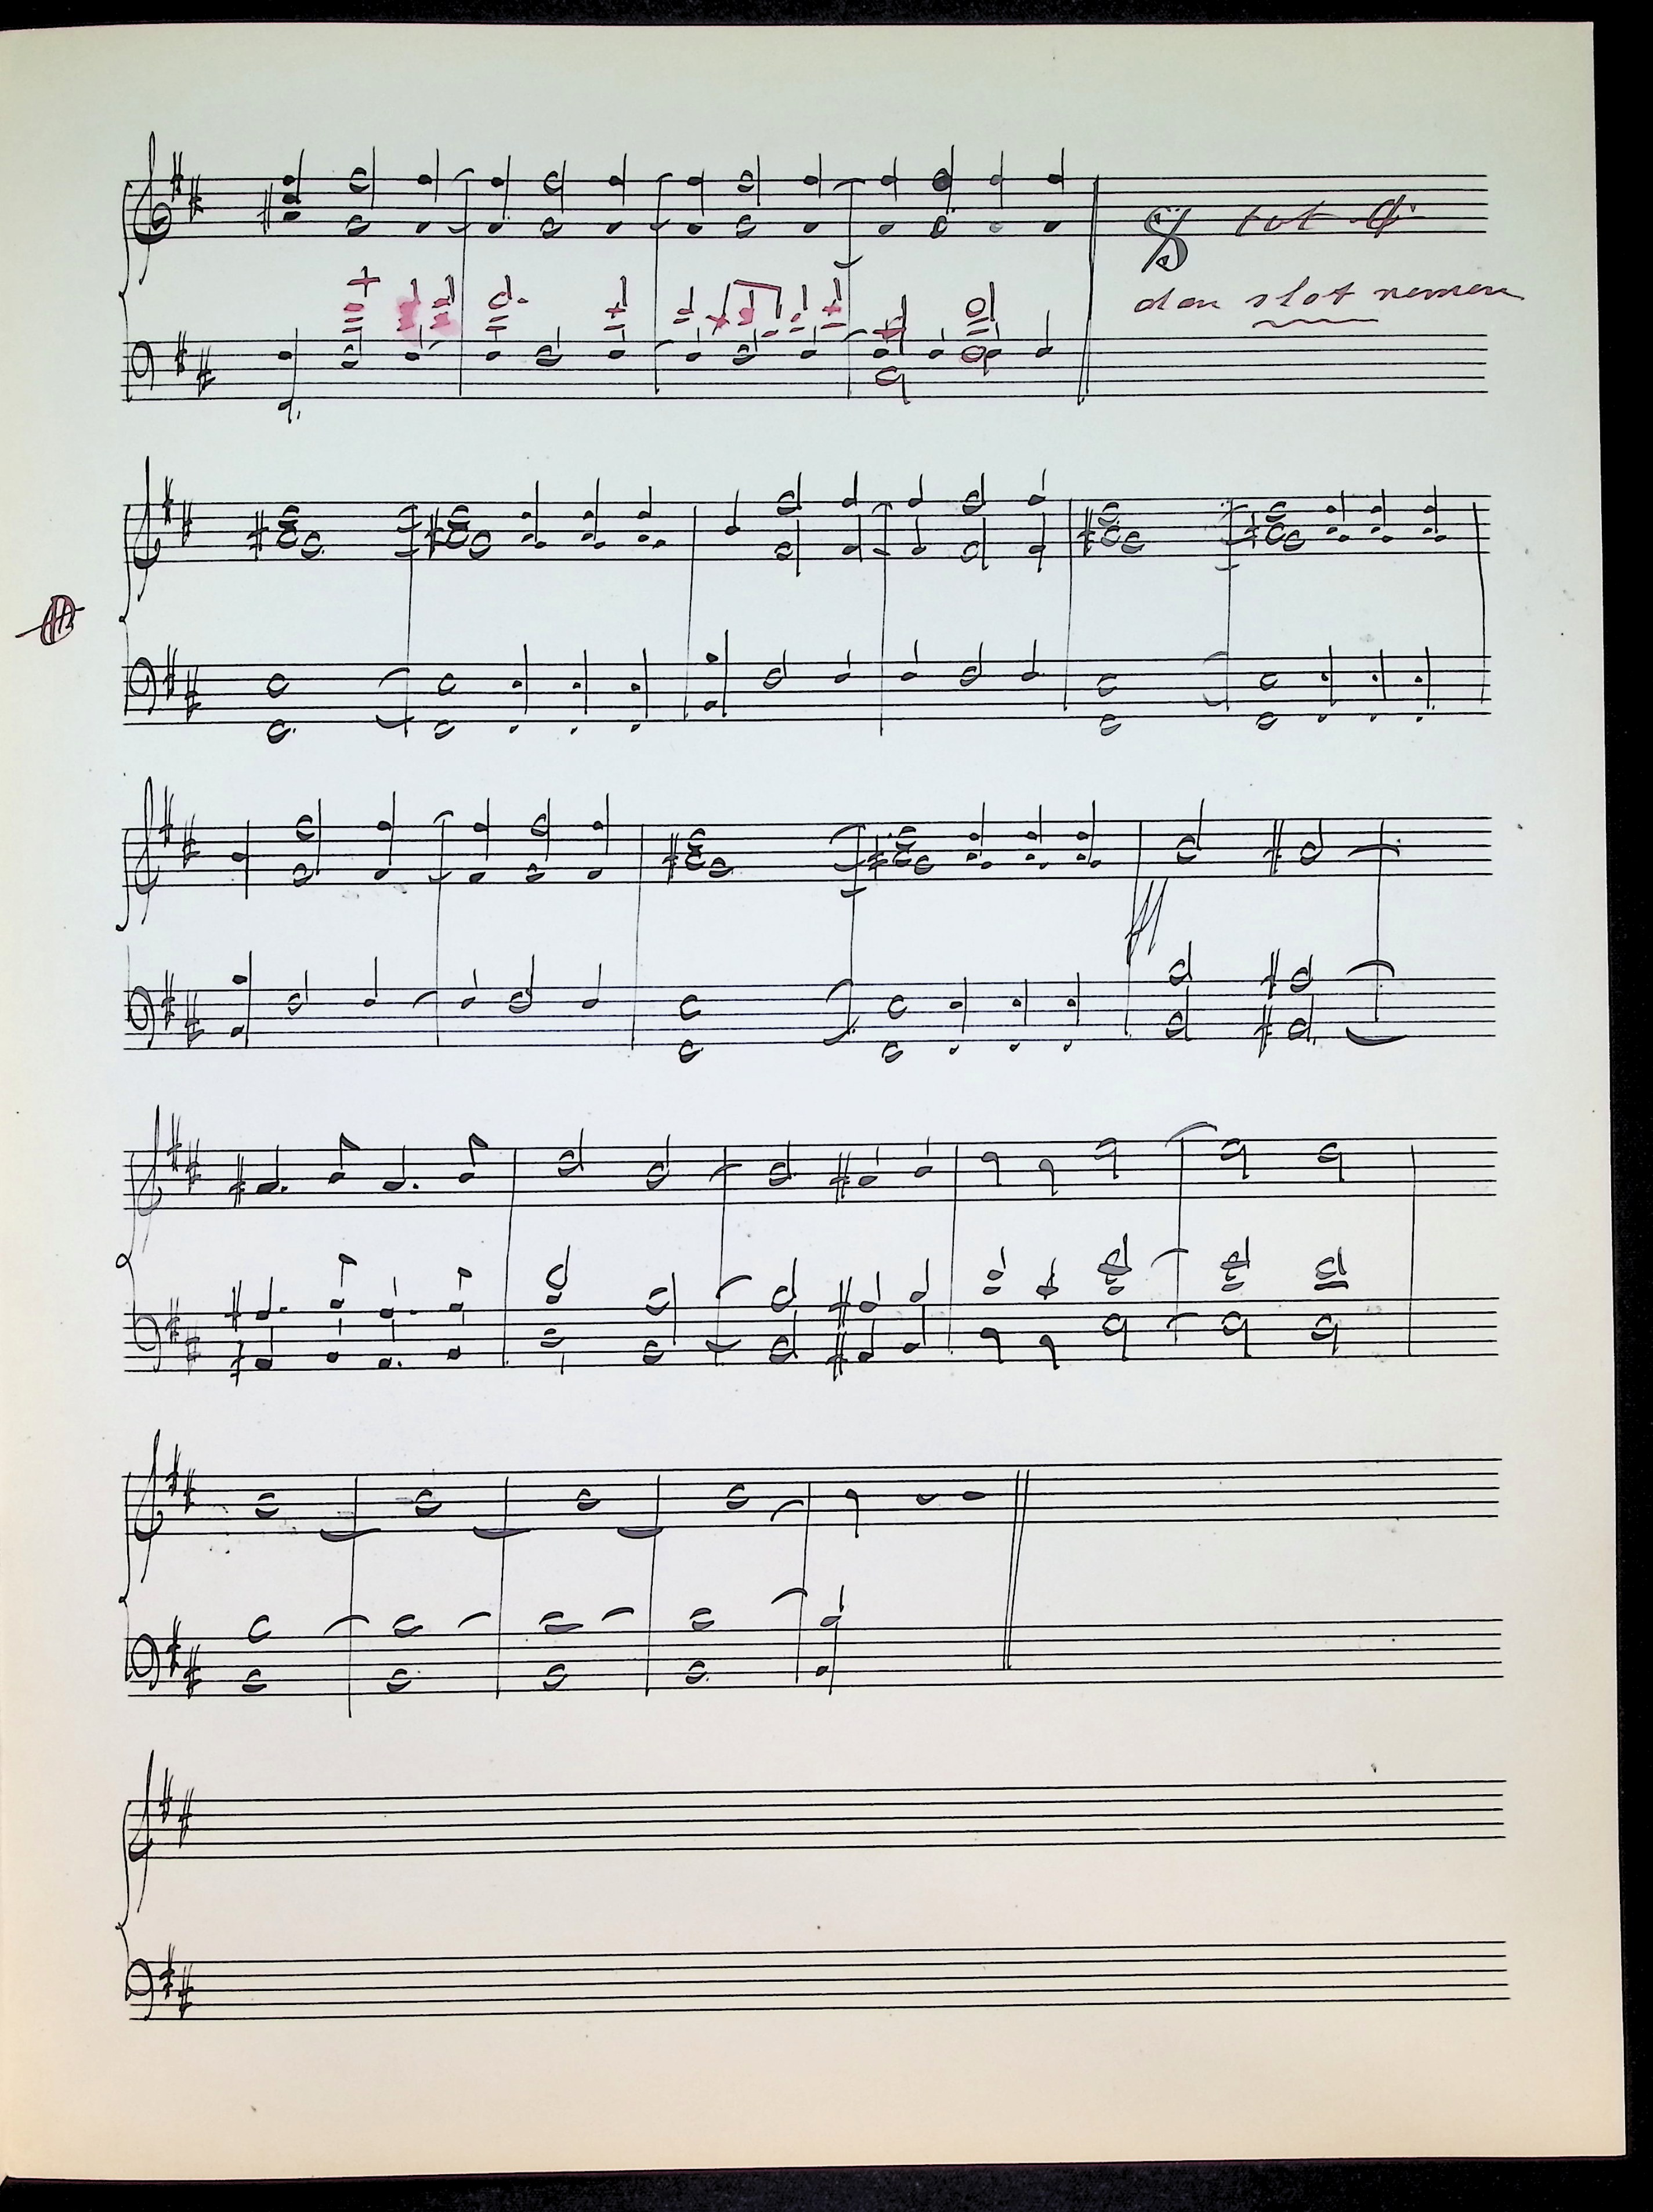 tot
dan slot nemen
ff